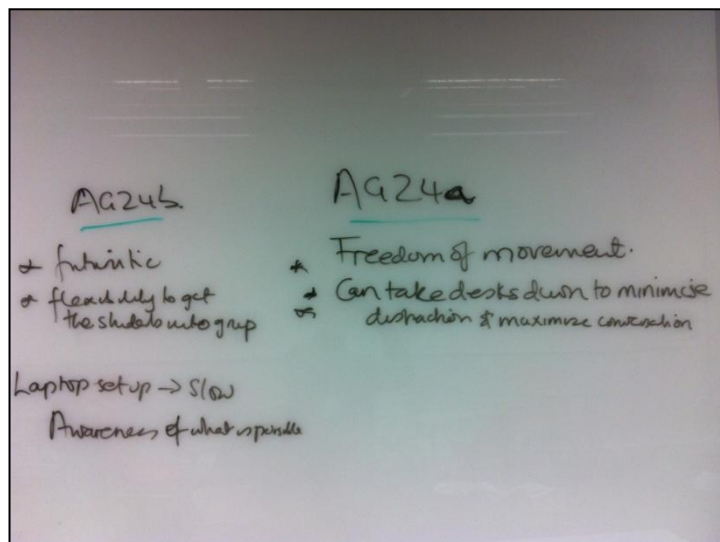 AG24b.
* futuristic
* flexibility to get
the students into group
Laptop setup → Slow
Awareness of what is possible
AG24a
* Freedom of movement.
* Can take desks down to minimise
distraction & maximize conversation